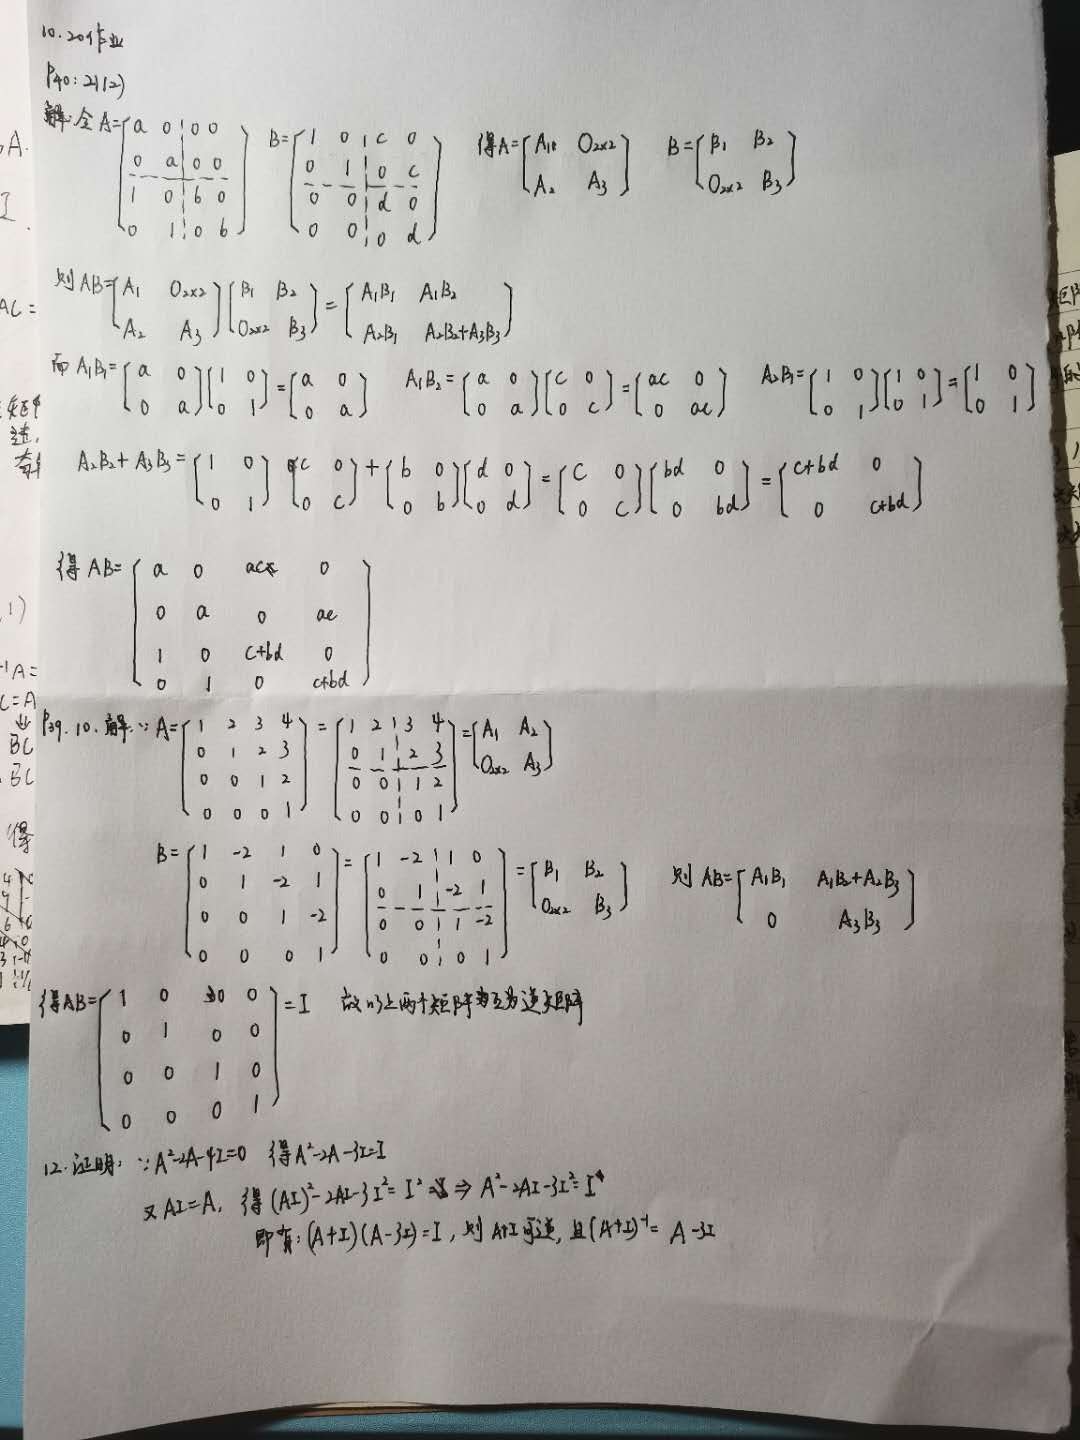 10.20作业
P40: 21(2)
解:令A=[a 0 0 0; 0 a 0 0; 1 0 b 0; 0 1 0 b] B=[1 0 c 0; 0 1 0 c; 0 0 d 0; 0 0 0 d] 得A=[A₁ O₂ₓ₂; A₂ A₃] B=[B₁ B₂; O₂ₓ₂ B₃]
则AB=[A₁ O₂ₓ₂; A₂ A₃][B₁ B₂; O₂ₓ₂ B₃]=[A₁B₁ A₁B₂; A₂B₁ A₂B₂+A₃B₃]
而A₁B₁=[a 0; 0 a][1 0; 0 1]=[a 0; 0 a] A₁B₂=[a 0; 0 a][c 0; 0 c]=[ac 0; 0 ac] A₂B₁=[1 0; 0 1][1 0; 0 1]=[1 0; 0 1]
A₂B₂+A₃B₃=[1 0; 0 1][c 0; 0 c]+[b 0; 0 b][d 0; 0 d]=[c 0; 0 c][bd 0; 0 bd]=[c+bd 0; 0 c+bd]
得AB=[a 0 ac 0; 0 a 0 ac; 1 0 c+bd 0; 0 1 0 c+bd]
P39. 10. 解:∵A=[1 2 3 4; 0 1 2 3; 0 0 1 2; 0 0 0 1]=[1 2 3 4; 0 1 2 3; 0 0 1 2; 0 0 0 1]=[A₁ A₂; O₂ₓ₂ A₃]
B=[1 -2 1 0; 0 1 -2 1; 0 0 1 -2; 0 0 0 1]=[1 -2 1 0; 0 1 -2 1; 0 0 1 -2; 0 0 0 1]=[B₁ B₂; O₂ₓ₂ B₃] 则AB=[A₁B₁ A₁B₂+A₂B₃; 0 A₃B₃]
得AB=[1 0 0 0; 0 1 0 0; 0 0 1 0; 0 0 0 1]=I 故以上两个矩阵为互为逆矩阵
12. 证明: ∵A²-2A-4I=0 得A²-2A-3I=I
又AI=A, 得(AI)²-2AI-3I²=I² ⇒ A²-2AI-3I²=I
即有:(A+I)(A-3I)=I, 则A+I可逆, 且(A+I)⁻¹=A-3I